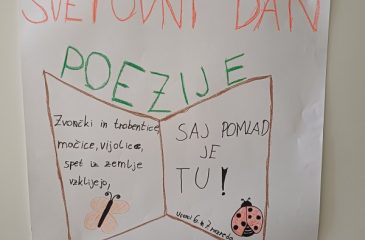 SVETOVNI DAN
POEZIJE
Zvončki in trobentice,
močice, vijolice,
spet iz zemlje
vzklijejo,
SAJ POMLAD
JE
TU!